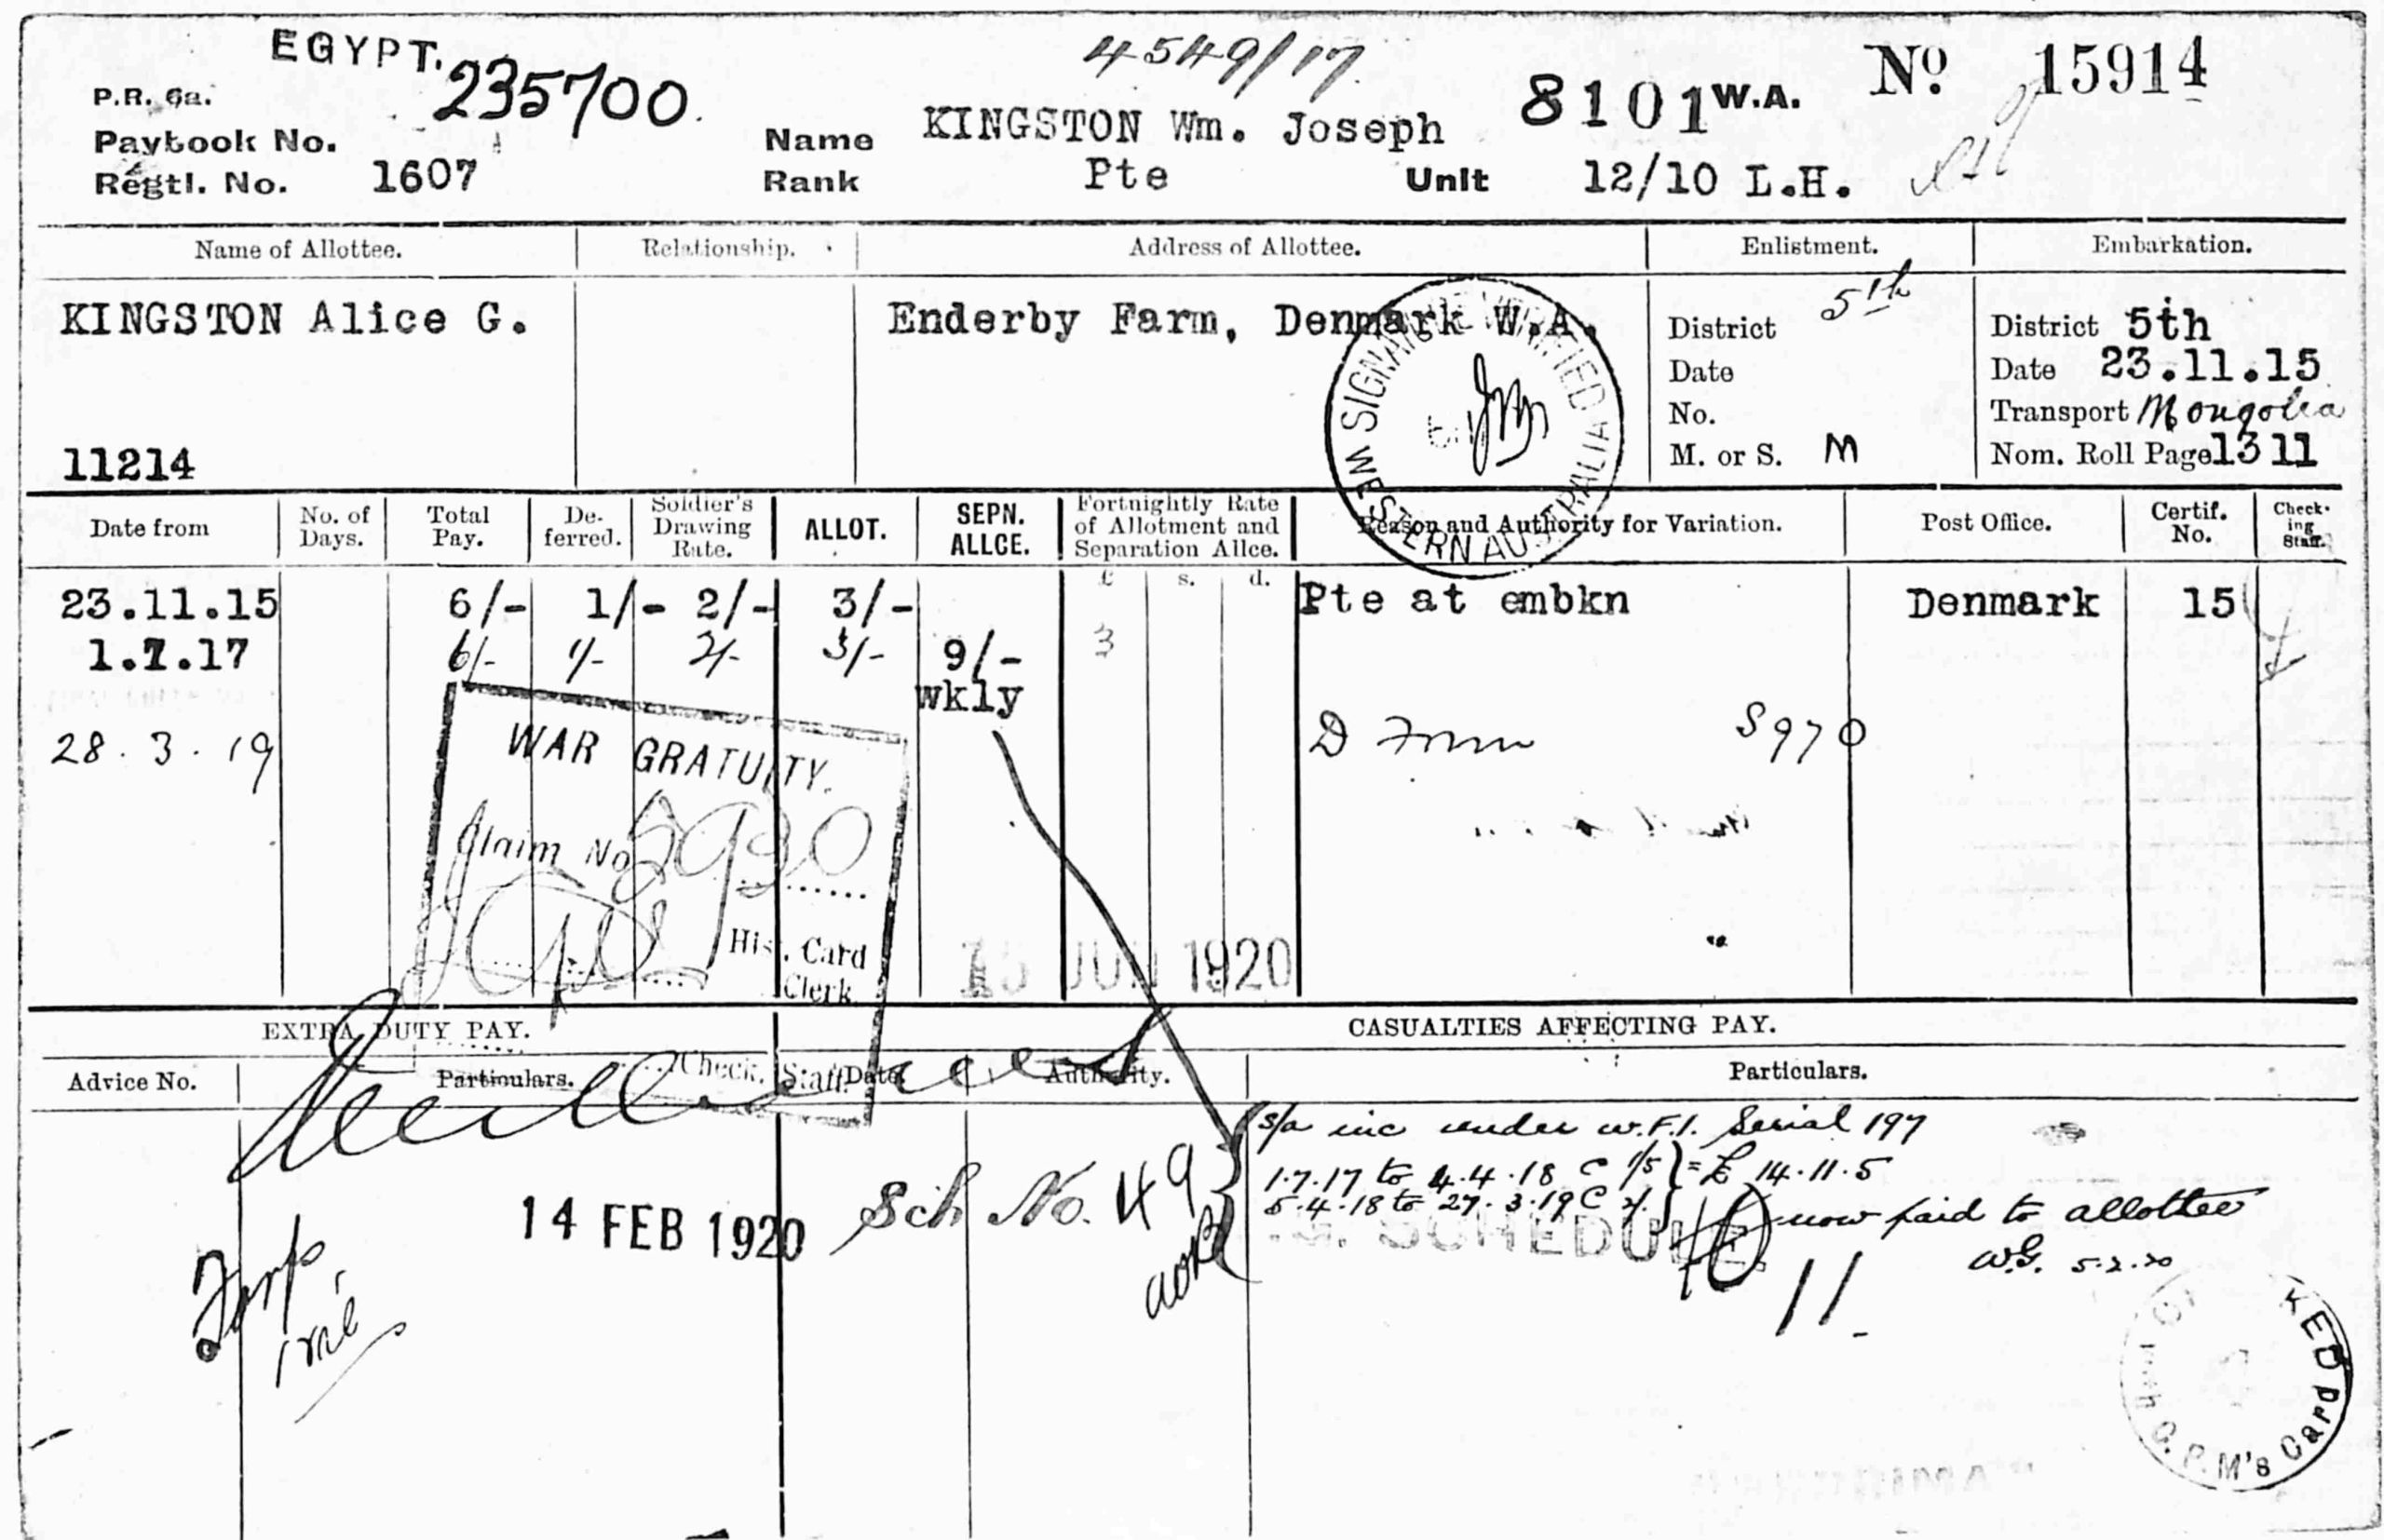 EGYPT.
4549/17
P.R. 6a.
235700.
KINGSTON Wm. Joseph
8101 W.A.
No 15914
Paybook No.
Name
Regtl. No. 1607
Rank Pte
Unit 12/10 L.H.
Name of Allottee.
Relationship.
Address of Allottee.
Enlistment.
Embarkation.
KINGSTON Alice G.
Enderby Farm, Denmark W.A.
District 5th
District 5th
Date
Date 23.11.15
No.
Transport Mongolia
11214
M. or S. M
Nom. Roll Page 1311
SIGNATURE VERIFIED
WESTERN AUSTRALIA
Date from
No. of Days.
Total Pay.
De-ferred.
Soldier's Drawing Rate.
ALLOT.
SEPN. ALLCE.
Fortnightly Rate of Allotment and Separation Allce.
Reason and Authority for Variation.
Post Office.
Certif. No.
Check-ing Staff.
£ s. d.
23.11.15 6/- 1/- 2/- 3/- Pte at embkn Denmark 15
1.7.17 6/- 1/- 2/- 3/- 9/- 3
wkly
28.3.19 S970
WAR GRATUITY.
Claim No 5930
His. Card
Clerk
Check. Staff.
15 JUN 1920
EXTRA DUTY PAY.
CASUALTIES AFFECTING PAY.
Advice No.
Particulars.
Date.
Authority.
Particulars.
s/a inc under W.F.I. Serial 197
1.7.17 to 4.4.18 @ 1/5 } = £ 14.11.5
5.4.18 to 27.3.19 @ 2/. }
now paid to allottee
W.G. 5.2.20
14 FEB 1920
Sch No. 49
SCHEDULE
11
KED
G.P.M's Card